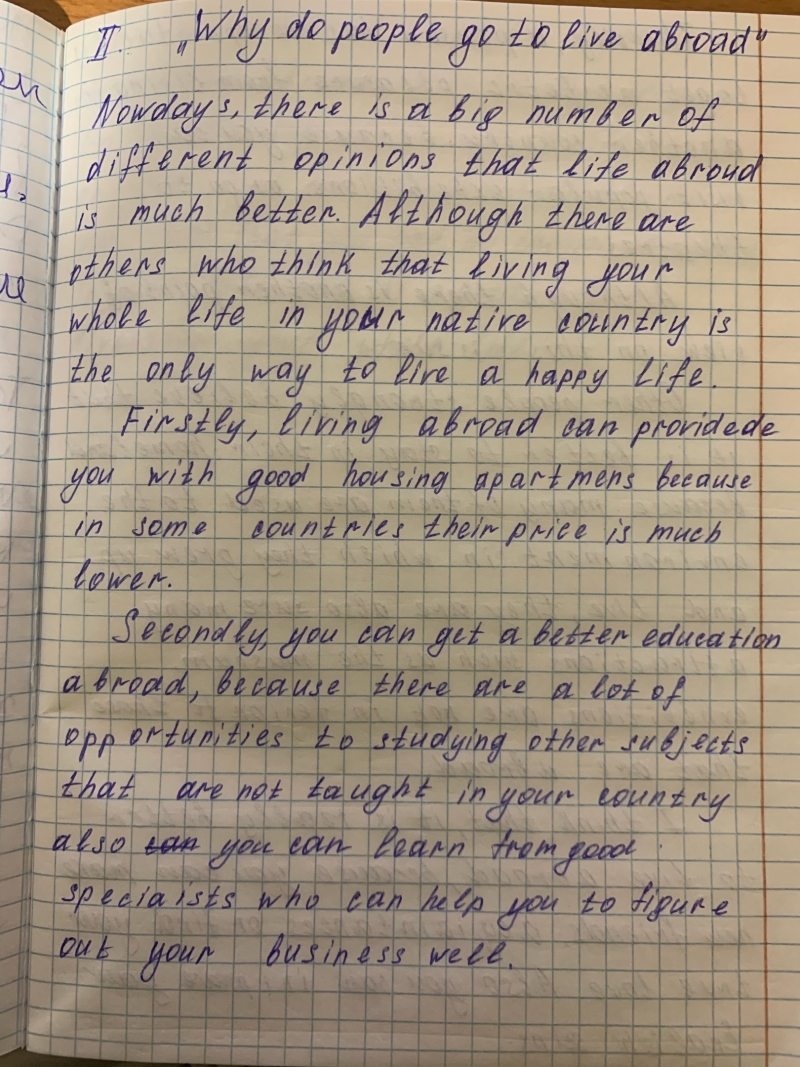 II. „Why do people go to live abroad"
Nowdays, there is a big number of
different opinions that life abroad
is much better. Although there are
others who think that living your
whole life in your native country is
the only way to live a happy life.
Firstly, living abroad can providede
you with good housing apartmens because
in some countries their price is much
lower.
Secondly, you can get a better education
abroad, because there are a lot of
opportunities to studying other subjects
that are not taught in your country
also can you can learn from good
speciaists who can help you to figure
out your business well.